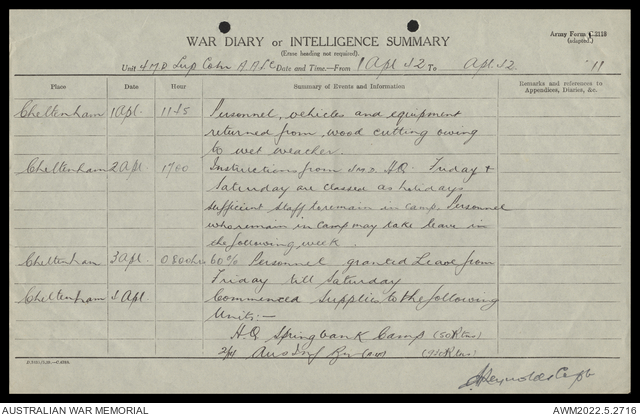 WAR DIARY or INTELLIGENCE SUMMARY
Army Form C.2118
(adapted.)
(Erase heading not required).
Unit 4 M.D. Sup Coln A.A.S.C Date and Time.—From 1 Apl 42 To Apl. 42
11
Place Date Hour Summary of Events and Information Remarks and references to Appendices, Diaries, &c.
Cheltenham 1 Apl. 1155 Personnel, vehicles and equipment
returned from wood cutting owing
to wet weather.
Cheltenham 2 Apl. 1700 Instructions from 4 M.D. H.Q. Friday &
Saturday are classed as holidays
sufficient staff to remain in camp. Personnel
who remain in camp may take leave in
the following week.
Cheltenham 3 Apl. 0800hrs 60% Personnel granted Leave from
Friday till Saturday
Cheltenham Apl. Commenced supplies to the following
Units:—
H.Q. Springbank Camp (50 Rtns)
Aust Inf Bn
Reynolds Capt
AUSTRALIAN WAR MEMORIAL
AWM2022.5.2716